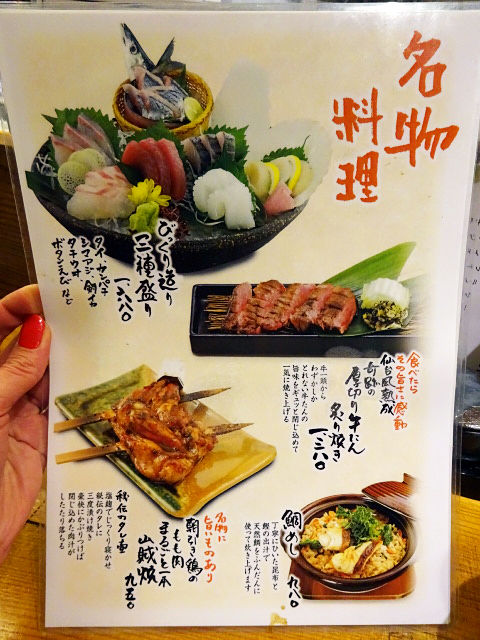 名物
料理
びっくり送り
三種盛り
一、六八〇
タイ・カンパチ
シマアジ・〆さば
タチウオ
ボタンえび など
食べたら
その旨さに感動
仙台風熟成
奇跡の
厚切り牛たん
炙り焼き
一、二八〇
牛一頭から
わずかしか
とれない牛たんの
旨味をギュッと閉じ込めて
一気に焼き上げる
名物に
旨いものあり
朝引き鶏の
もも肉
まるごと一本
山賊焼
九五〇
秘伝のタレ壷
塩麹でじっくり寝かせ
秘伝のタレに
三度漬け焼き
豪快にかぶりつけば
閉じ込めた肉汁が
したたり落ちる
鯛めし
九八〇
丁寧にひいた昆布と
鰹の出汁で
天然鯛をふんだんに
使って炊き上げます